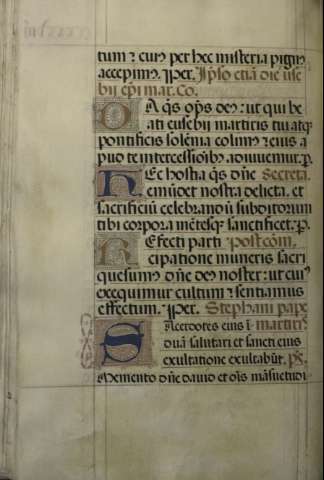 tum ⁊ cum per hec misteria pigm̄
accepim⁹. ꝑer. Ipso etiā die use
bii ep̄i mar. Co.
DA q̄s op̄s deus: ut qui be
ati eusebii martiris tui atqȝ
pontificis solēnia colim⁹ ⁊ eius a
pud te intercessioīb⁹ adiuuemur. p.
HEc hostia q̄s dn̄e Secreta.
emūdet nostra delicta. et
sacrificiū celebrandū subditorum
tibi corpora mētesqȝ sanctificet. p.
REfecti parti Postcōm.
cipatione muneris sacri
quesumus dn̄e deus noster: ut cui⁹
exequimur cultum ⁊ sentiamus
effectum. ꝑer. Stephani pape
SAcerdotes eius ī martiri⁹
duā salutari et sancti eius
exultatione exultabūt. ps.
Memento dn̄e dauid et oīs māsuetudi